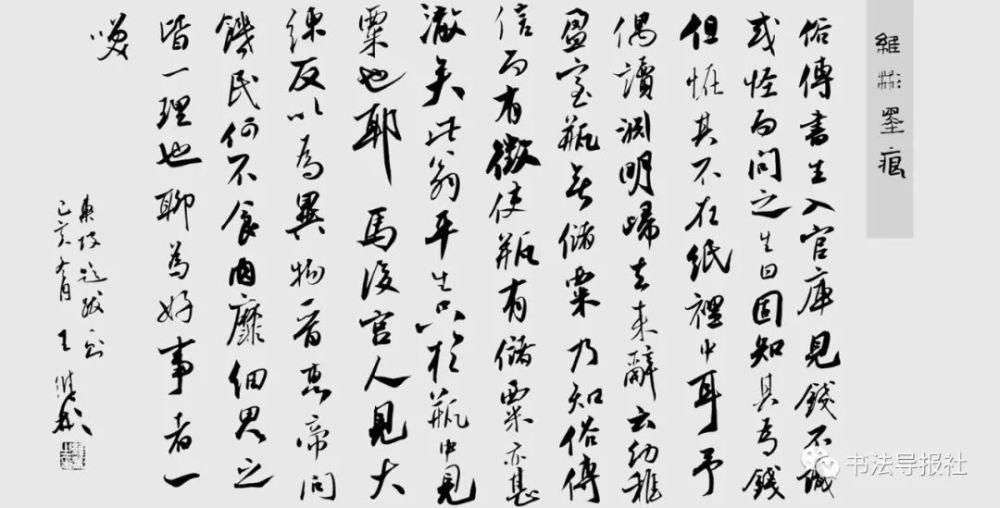 維彬墨痕
俗傳書生入官庫見錢不識
或怪而問之生曰固知其為錢
但怪其不在紙裡中耳予
偶讀淵明歸去來辭云幼稚
盈室瓶無儲粟乃知俗傳
信而有徵使瓶有儲粟亦甚
微矣此翁平生只於瓶中見
粟也耶 馬後宮人見大
練反以為異物晉惠帝問
饑民何不食肉糜細思之
皆一理也聊為好事者一
咲
東坡題跋
己亥 月 王維彬
书法导报社